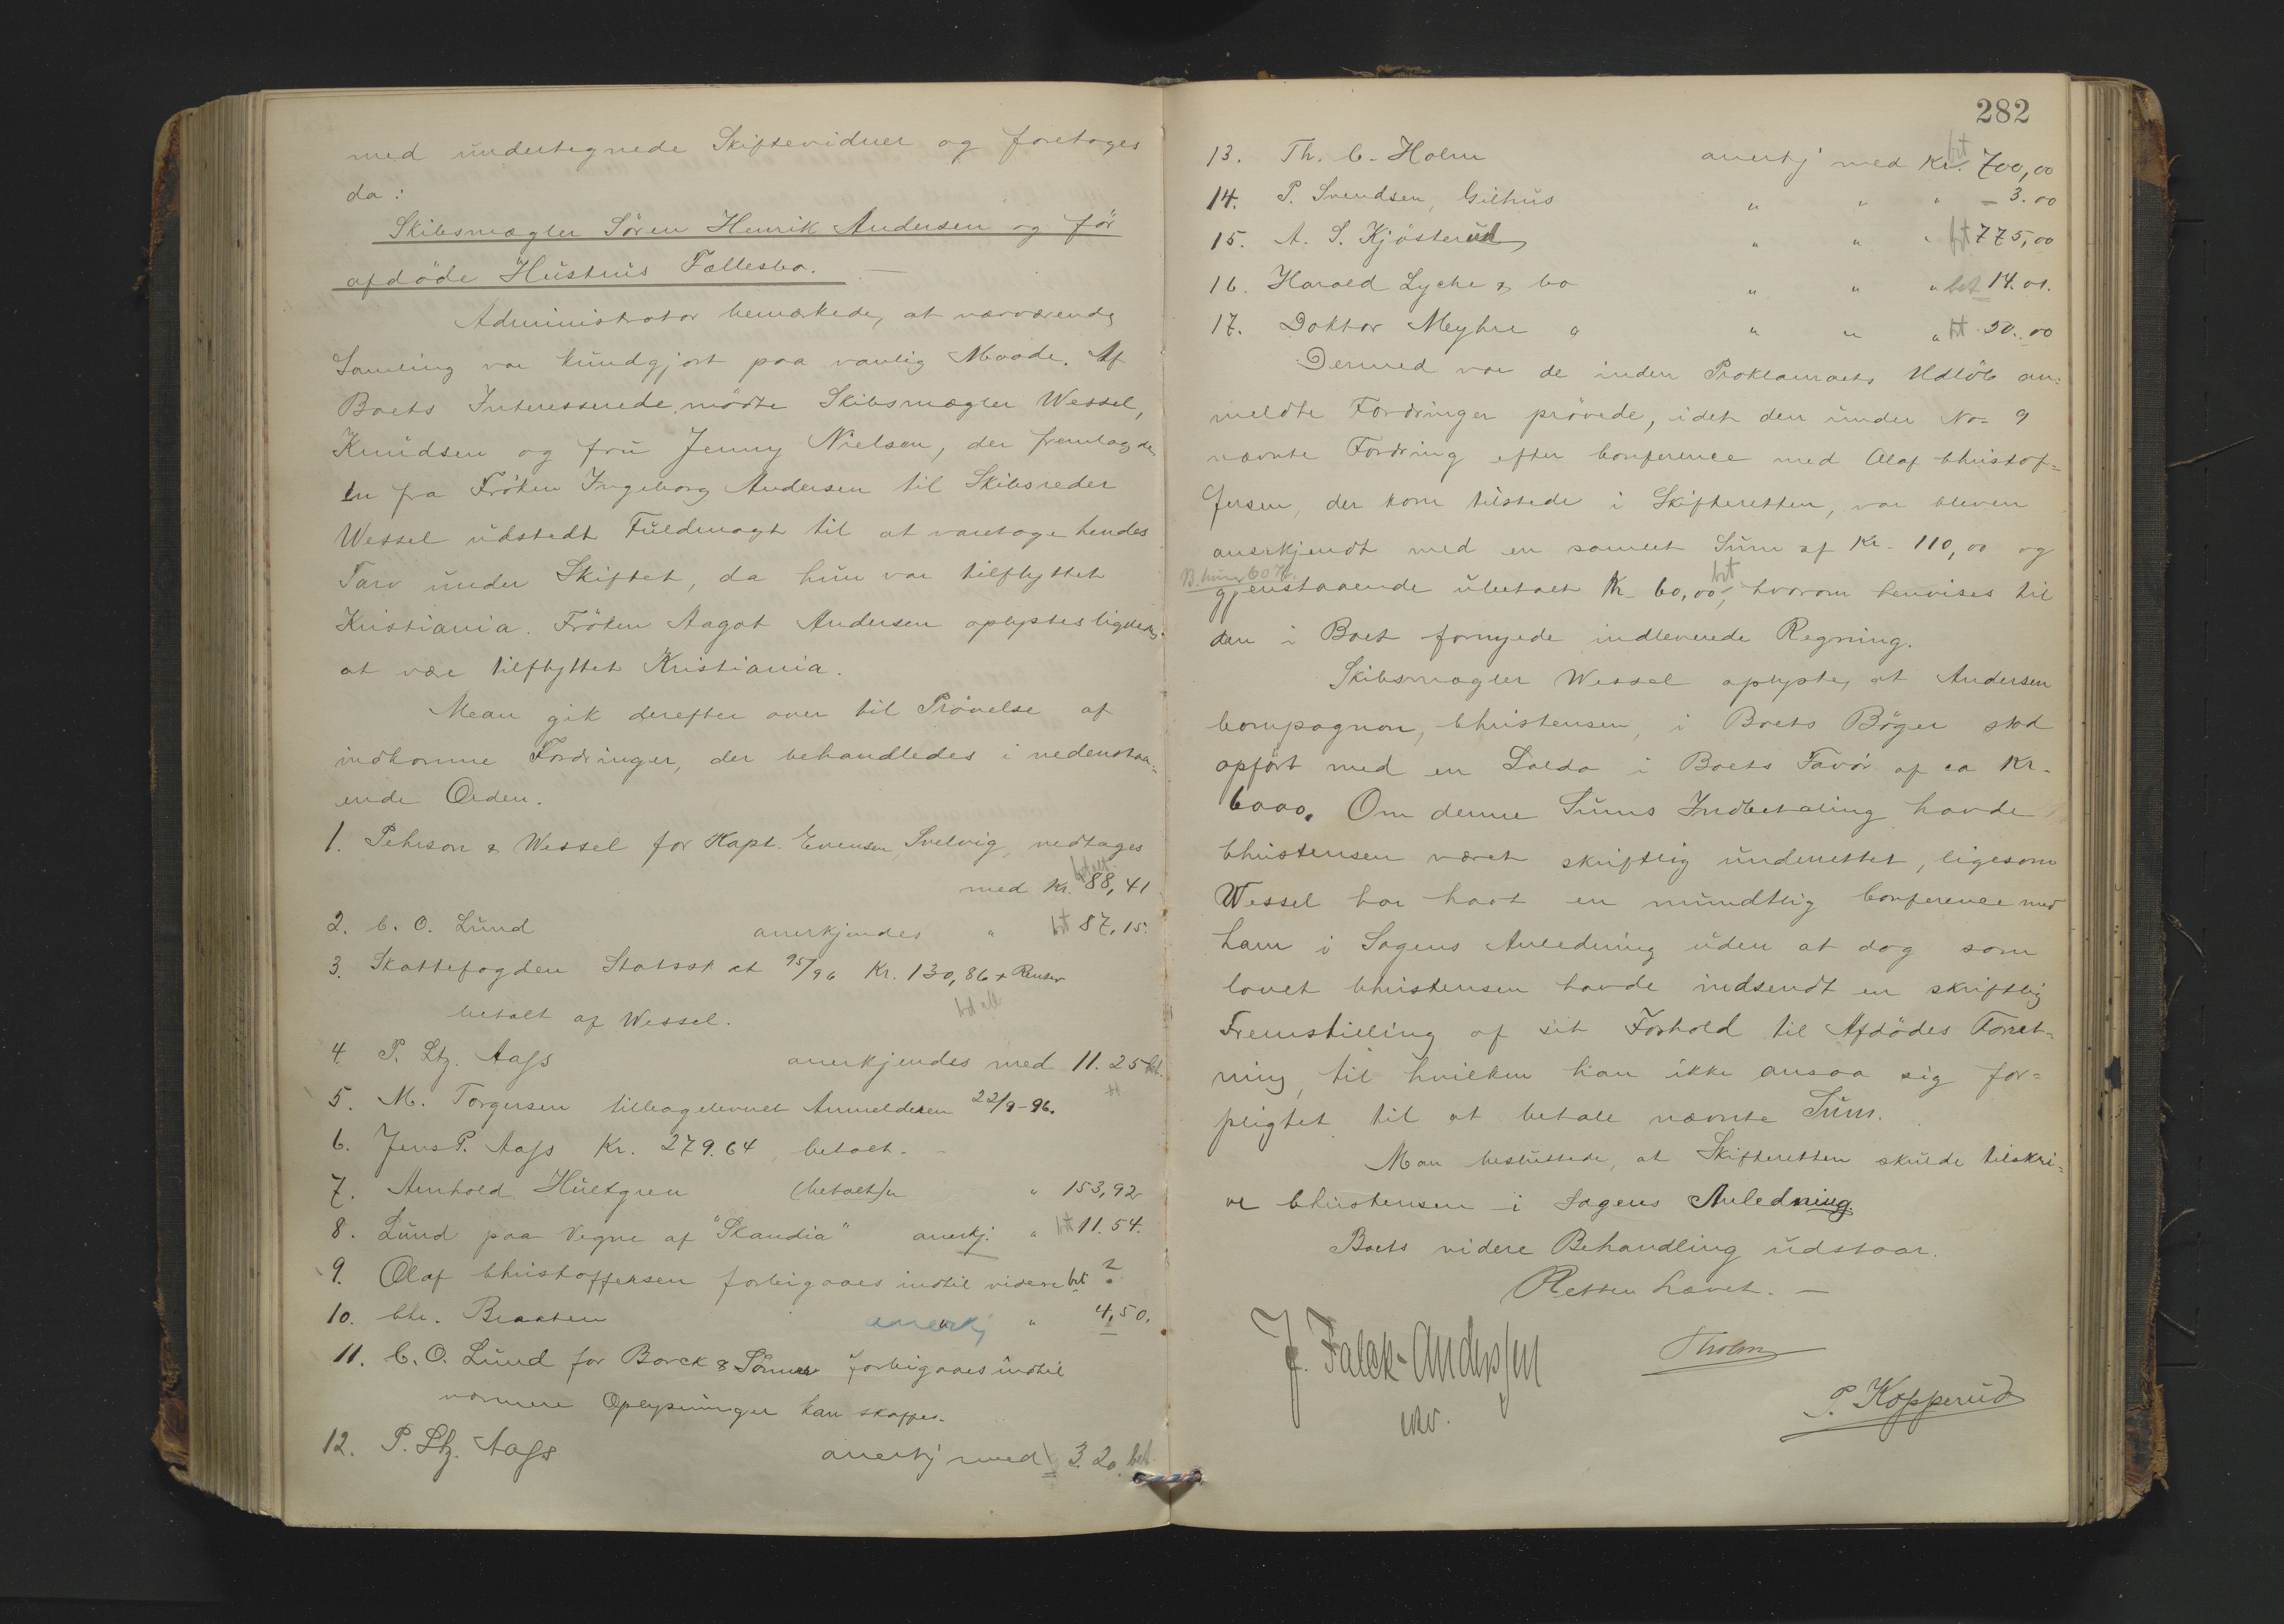 med undertegnede Skiftevidner og foretoges
da:
Skibsmægler Sören Henrik Andersen og för
afdöde Hustrus Fællesbo. —
Administrator bemærkede, at nærværende
Samling var kundgjort paa vanlig Maade. Af
Boets Interesserede mödte Skibsmægler Wessel,
Knudsen og fru Jenny Nielsen, der fremlagde
en fra Fröken Ingeborg Andersen til Skibsreder
Wessel udstedt Fuldmagt til at varetage hendes
Tarv under Skiftet, da hun var tilflyttet
Kristiania. Fröken Aagot Andersen oplystes ligeledes
at være tilflyttet Kristiania.
Mean gik derefter over til Prövelse af
indkomne Fordringer, der behandledes i nedenstaa=
ende Orden.
1. Pehrson & Wessel for Kapt. Evensen, Svelvig, vedtages
med Kr. 88,41
2. C. O. Lund anerkjendes " bt 87,15.
3. Skattefogden Statssk at 95/96 Kr. 130,86 + Renter
betalt af Wessel.
4 P. Ltz. Aass anerkjendes med 11.25 bt.
5. M. Torgersen tilbageleveret Anmeldelsen 22/9-96.
6. Jens P. Aass Kr. 279.64, betalt. -
7. Arnhold Hultgren (betalt) " 153,92
8. Lund paa Vegne af "Skandia" anerkj. " bt 11.54.
9. Olaf Christoffersen forbigaaes indtil videre bt ?
10. Chr. Braaten anerkj " 4,50.
11. C. O. Lund for Borck & Sönner forbigaaes indtil
nærmere Oplysninger kan skaffes.
12. P. Ltz. Aass anerkj med 3.20. bet
282
13. Th. C. Holm anerkj med Kr. bt 700,00
14. P. Svendsen, Gilhus " " " - 3.00
15. A. S. Kjösterud " " " bt 775,00
16. Harald Lyche & Co " " " bet 14.01.
17. Doktor Meyhre " " " bt 50.00
Dermed var de inden Proklamaets Udlöb an=
meldte Fordringer prövede, idet den under No- 9
nævnte Fordring efter Conference med Olaf Christof=
fersen, der kom tilstede i Skifteretten, var bleven
anerkjendt med en samlet Sum af Kr. 110,00 og
gjenstaaende ubetalt Kr. 60,00, bt hvorom henvises til
den i Boet fornyede indleverede Regning.
Skibsmægler Wessel oplyste, at Andersen
Compagnon, Christensen, i Boets Böger stod
opfört med en Saldo i Boets Favör af ca Kr.
6000. Om denne Sums Indbetaling havde
Christensen været skriftlig underrettet, ligesom
Wessel har havt en mundtlig Conference med
ham i Sagens Anledning uden at dog som
lovet Christensen havde indsendt en skriftlig
Fremstilling af sit Forhold til Afdödes Forret-
ning, til hvilken han ikke ansaa sig for=
pligtet til at betale nævnte Sum.
Man besluttede, at Skifteretten skulde tilskri=
ve Christensen i Sagens Anledning.
Boets videre Behandling udstaar.
Retten hævet. —
J. Falck-Anderssen
Tholm
P. Kopperud